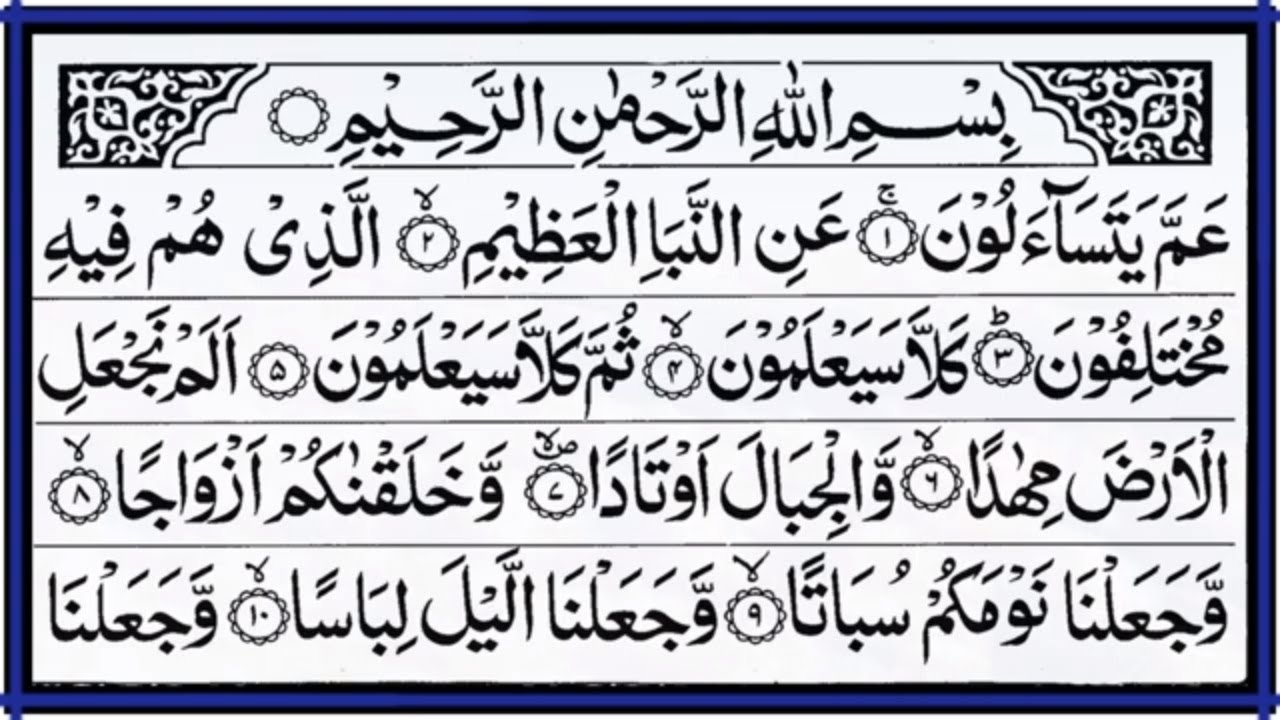 بِسْمِ اللّٰهِ الرَّحْمٰنِ الرَّحِیْمِ
عَمَّ یَتَسَآءَلُوْنَ ۚ﴿۱﴾ عَنِ النَّبَاِ الْعَظِیْمِ ۙ﴿۲﴾ الَّذِیْ هُمْ فِیْهِ
مُخْتَلِفُوْنَ ؕ﴿۳﴾ كَلَّا سَیَعْلَمُوْنَ ۙ﴿۴﴾ ثُمَّ كَلَّا سَیَعْلَمُوْنَ ﴿۵﴾ اَلَمْ نَجْعَلِ
الْاَرْضَ مِهٰدًا ۙ﴿۶﴾ وَّالْجِبَالَ اَوْتَادًا ۪ۙ﴿۷﴾ وَّخَلَقْنٰكُمْ اَزْوَاجًا ۙ﴿۸﴾
وَّجَعَلْنَا نَوْمَكُمْ سُبَاتًا ۙ﴿۹﴾ وَّجَعَلْنَا الَّیْلَ لِبَاسًا ۙ﴿۱۰﴾ وَّجَعَلْنَا